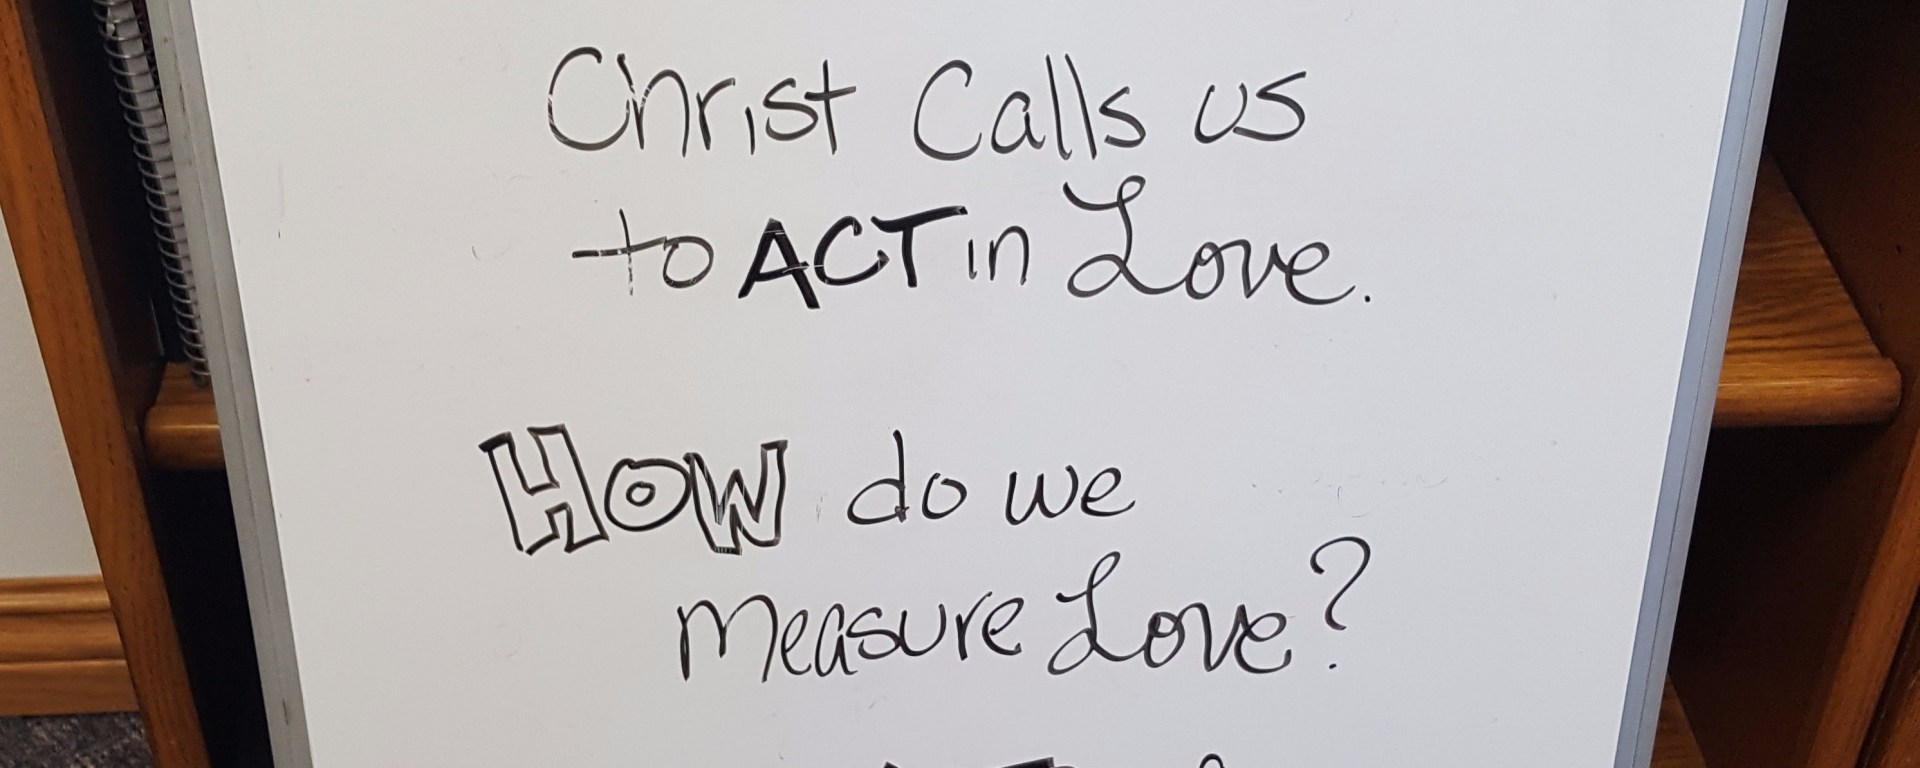 Christ Calls us
to ACT in Love.
HOW do we
measure Love?